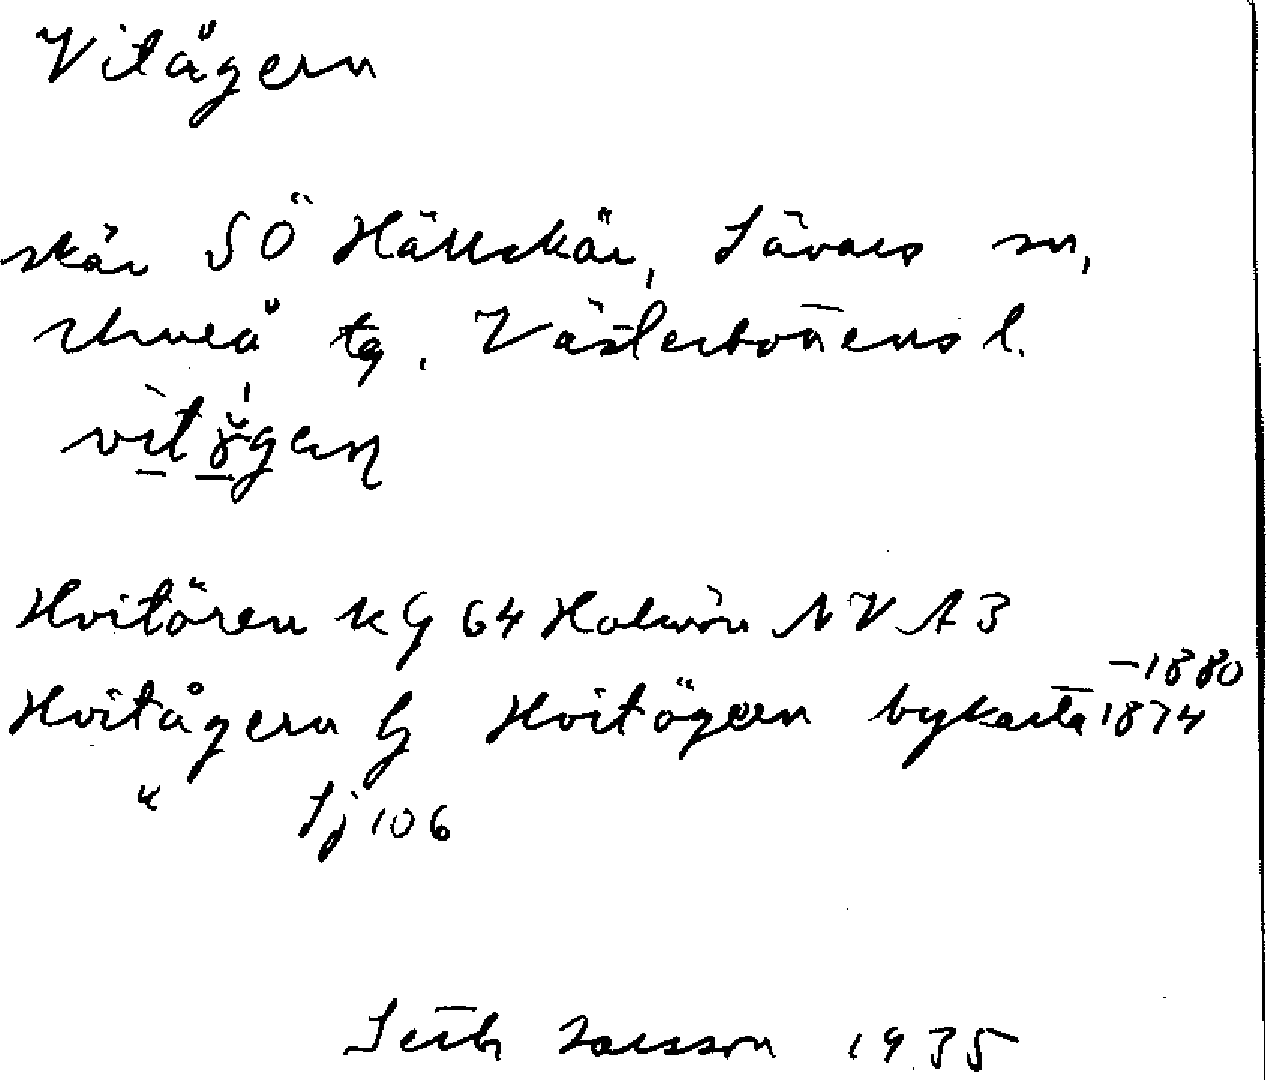 Vitågern
skär SÖ Hällskär, Sävars sn,
Umeå tg. Västerbottens l.
Hvitören KG 64 Holmön NV A3
Hvitågern G Hvitögern bykarta 1874
–1880
" Sj 106
Seth Larsson 1935